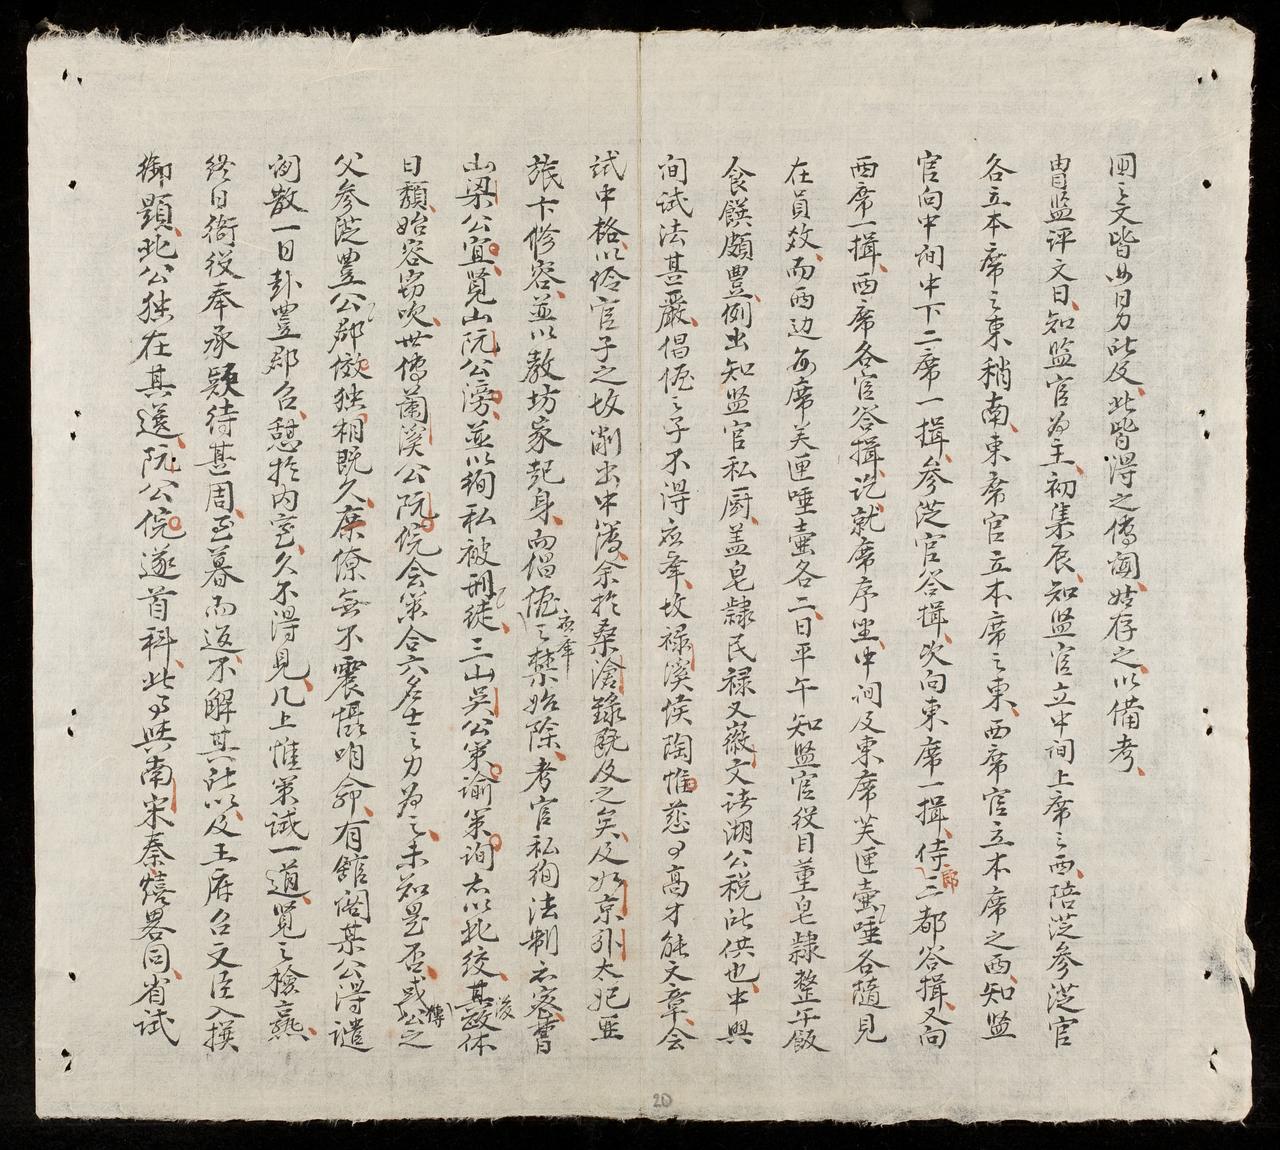 囬之文皆如男所及此皆得之傳聞姑存之以備考
胄監評文日知監官為主初集辰知監官立中間上席之西陪從參從官
各立本席之東稍南東席官立本席之東西席官立本席之西知監
官向中間中下二席一揖參從官答揖次向東席一揖侍郎三都答揖又向
西席一揖西席各官答揖訖就席序坐中間及東席芙匣壷唾各隨見
在員效而西边每席芙匣唾壷各二日平午知監官役目董皂隸整午飯
食饌頗豊例出知監官私厨盖皂隸民禄又徵文诸湖公税所供也中興
間試法甚嚴倡優之子不得应舉故禄溪侯陶惟慈以高才能文章会
試中格以伶官子之故削出中後余於桑滄錄既及之矣及如京外太妃亜
旅卞修容並以教坊家起身而倡優之应舉禁始除考官私徇法制亦密曹
山梁公宜覽山阮公滂並以徇私被刑徒三山吳公策諭策詢亦以此絞其後政体
日頽始容窃吹世傳蘭溪公阮侊会策合六名士之力為之未知是否或傳公之
父參從豊公郡俶独相既久庶僚無不震慴时命有舘閣某公得譴
閒散一日卦豊郡召憩於内室久不得見几上惟策試一道覽之檢熟
終日衙役奉承顕待甚周至暮而返不解其所以及王府召文臣入撰
御題此公独在其选阮公侊遂首科此事與南宋秦熺畧同省試
20